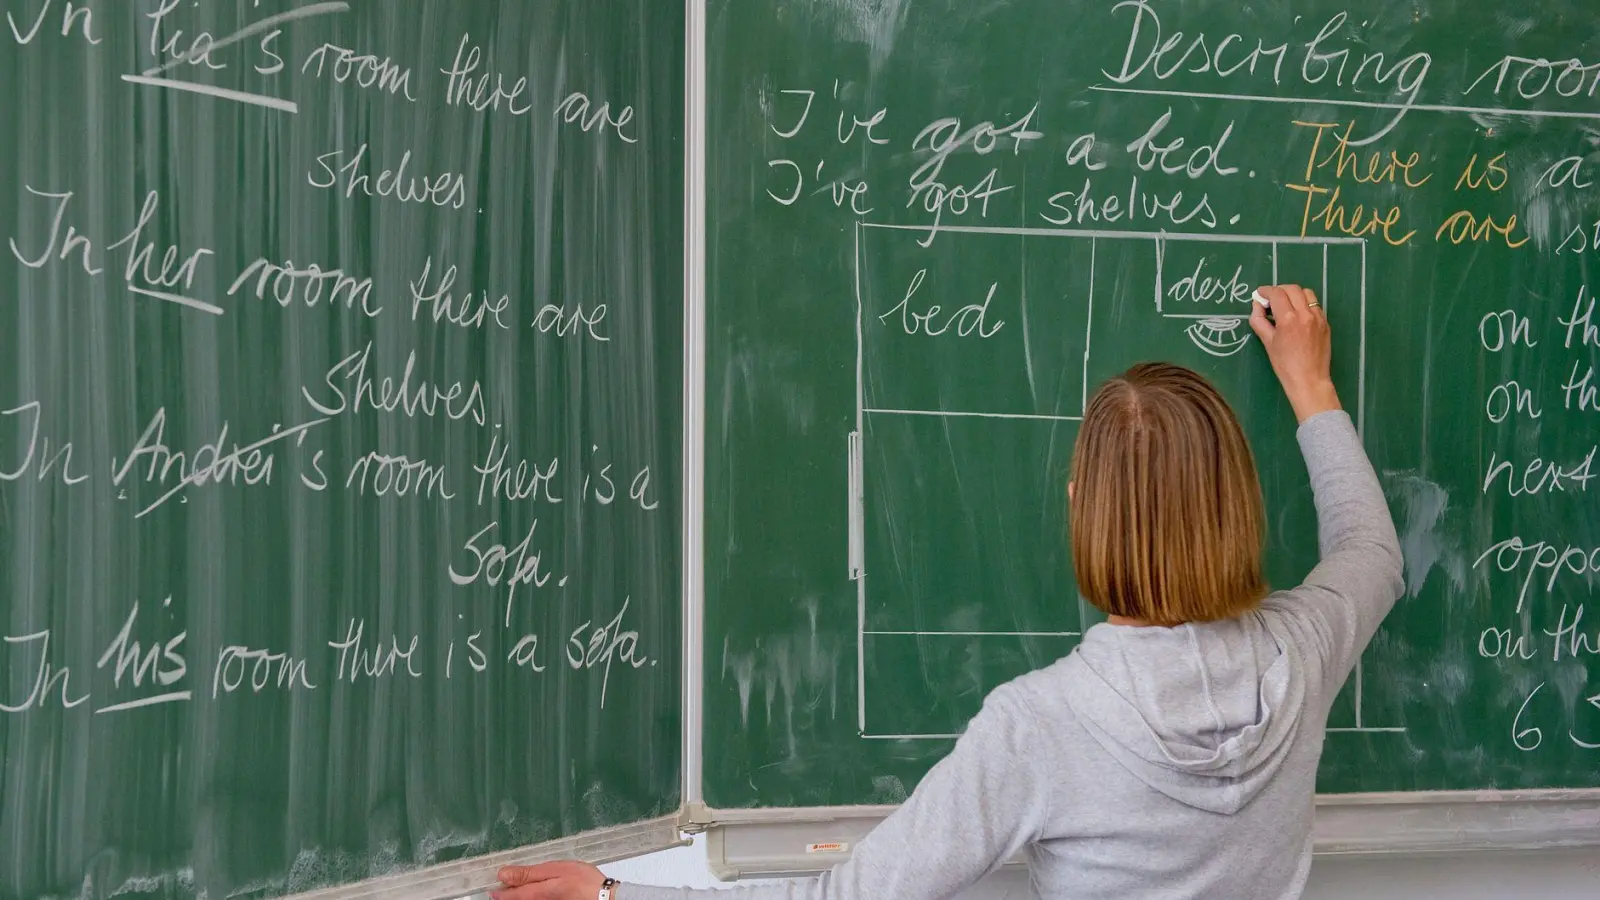 In Pia's room there are
shelves.
In her room there are
shelves.
In Andrei's room there is a
sofa.
In his room there is a sofa.
Describing
I've got a bed. There is a
I've got shelves. There are
bed
desk
on
on
next
on
6